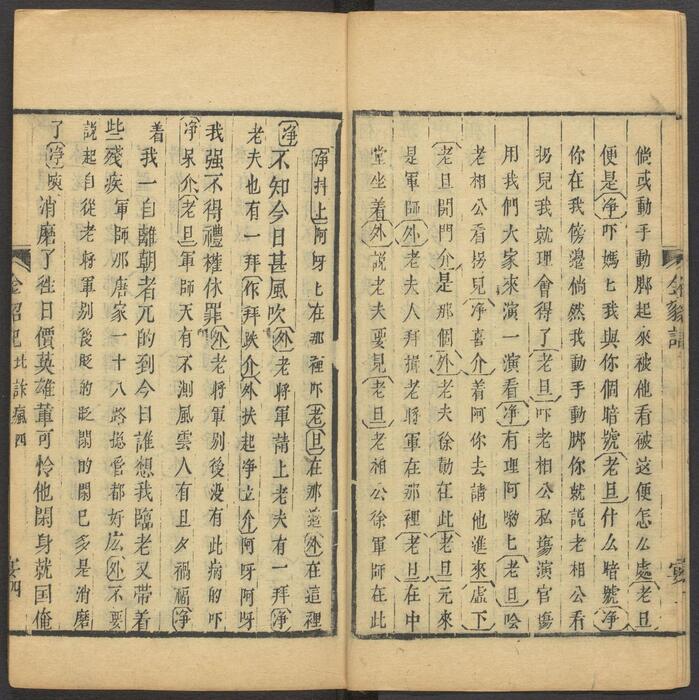 倘或動手動脚起來被他看破這便怎么處老旦
便是淨吓媽匕我與你個暗號老旦什么暗號淨
你在我傍邉倘然我動手動脚你就説老相公看
拐兒我就理會得了老旦吓老相公私塲演官塲
用我們大家來演一演看淨有理阿喲匕老旦噲
老相公看拐兒淨喜介着阿你去請他進來虛下
老旦開門介是那個外老夫徐勣在此老旦元來
是軍師外老夫人拜揖老將軍在那裡老旦在中
堂坐着外説老夫要見老旦老相公徐軍師在此
淨抖上阿呀上在那裡吓老旦在那邉外在這裡
淨不知今日甚風吹外老將軍請上老夫有一拜淨
老夫也有一拜作拜跌介外扶起淨立介阿呀阿呀
我强不得禮權休罪外老將軍别後没有此病的吓
淨呆介老旦軍師天有不測風雲人有旦夕禍福淨
着我一自離朝者元的到今日誰想我臨老又帶着
些殘疾軍師那唐家一十八路總管都好庅外不要
説起自從老將軍别後貶的貶閑的閑巳多是消磨
了淨唉消磨了徃日價英雄軰可怜他閑身就国俺
金貂記 北詐瘋 四